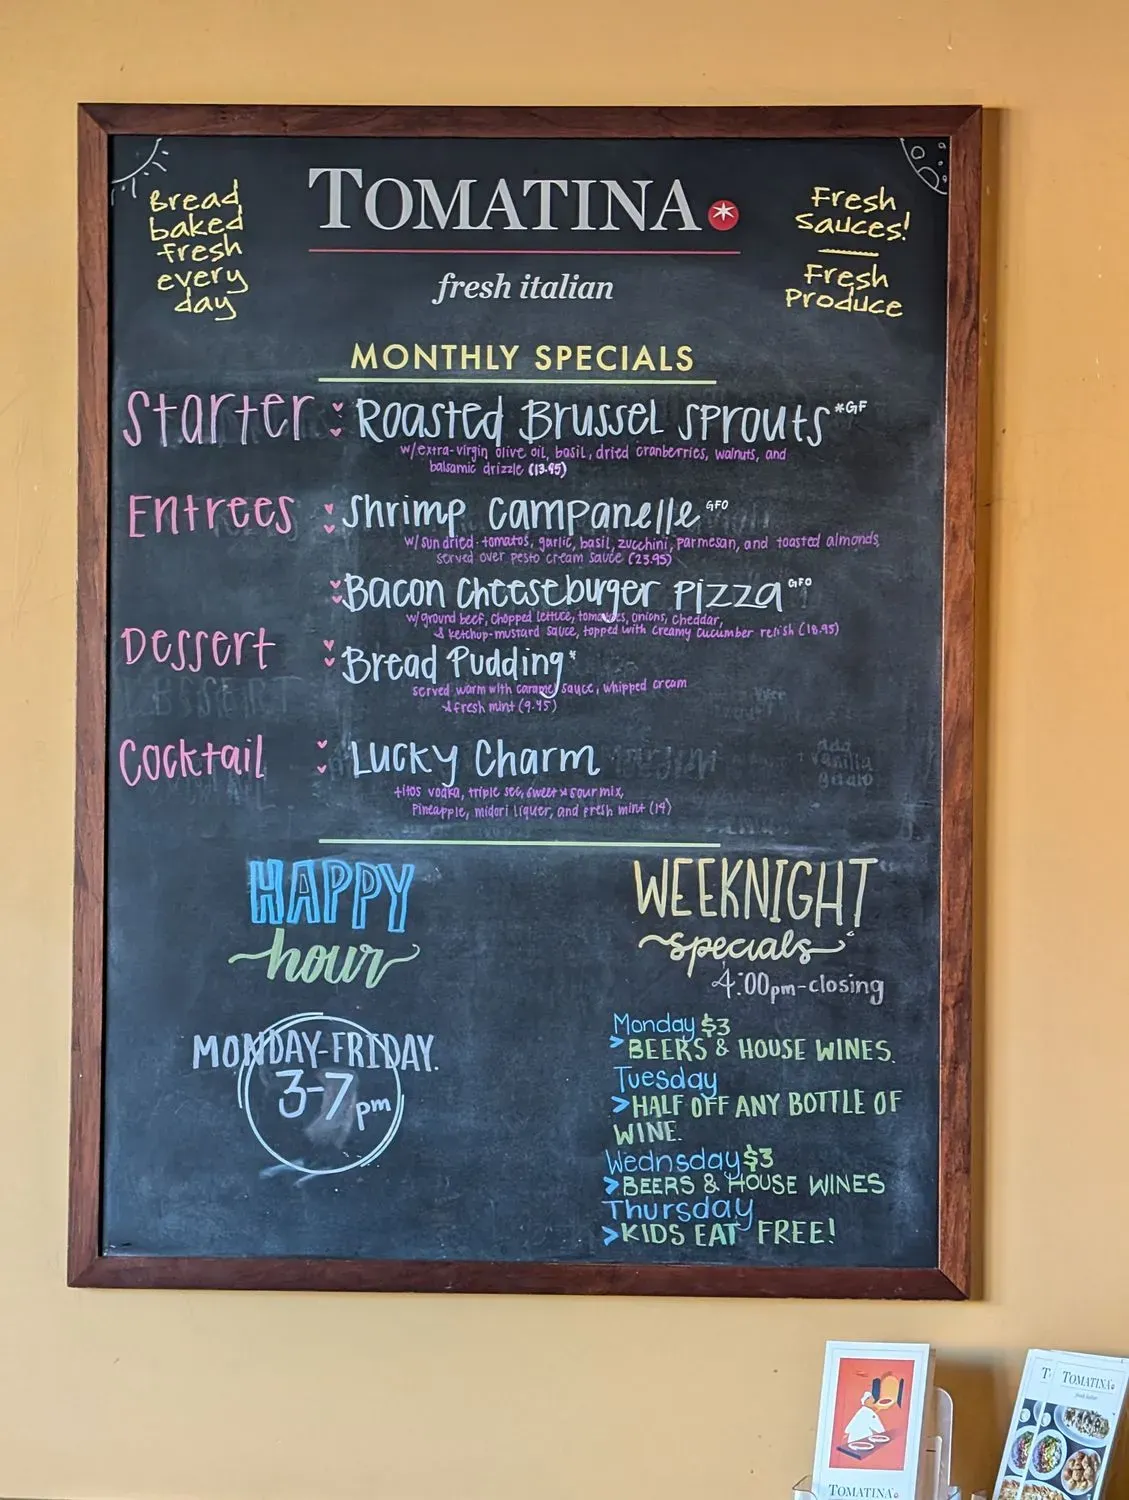 Bread
baked
fresh
every
day
TOMATINA
fresh italian
Fresh
Sauces!
Fresh
Produce
MONTHLY SPECIALS
Starter : Roasted Brussel Sprouts *GF
w/extra-virgin olive oil, basil, dried cranberries, walnuts, and
balsamic drizzle (13.95)
Entrees : Shrimp Campanelle GFO
w/sun dried-tomatos, garlic, basil, zucchini, parmesan, and toasted almonds,
served over pesto cream sauce (23.95)
: Bacon Cheeseburger Pizza GFO
w/ground beef, chopped lettuce, tomatoes, onions, cheddar,
& ketchup-mustard sauce, topped with creamy cucumber relish (18.95)
Dessert : Bread Pudding*
served warm with caramel sauce, whipped cream
& fresh mint (9.95)
Cocktail : Lucky Charm
titos vodka, triple sec, sweet & sour mix,
Pineapple, midori liquer, and fresh mint (14)
HAPPY
hour
MONDAY-FRIDAY.
3-7pm
WEEKNIGHT
specials
4:00pm-closing
Monday $3
> BEERS & HOUSE WINES.
Tuesday
> HALF OFF ANY BOTTLE OF
WINE.
Wednsday $3
> BEERS & HOUSE WINES
Thursday
> KIDS EAT FREE!
TOMATINA
TOMATINA